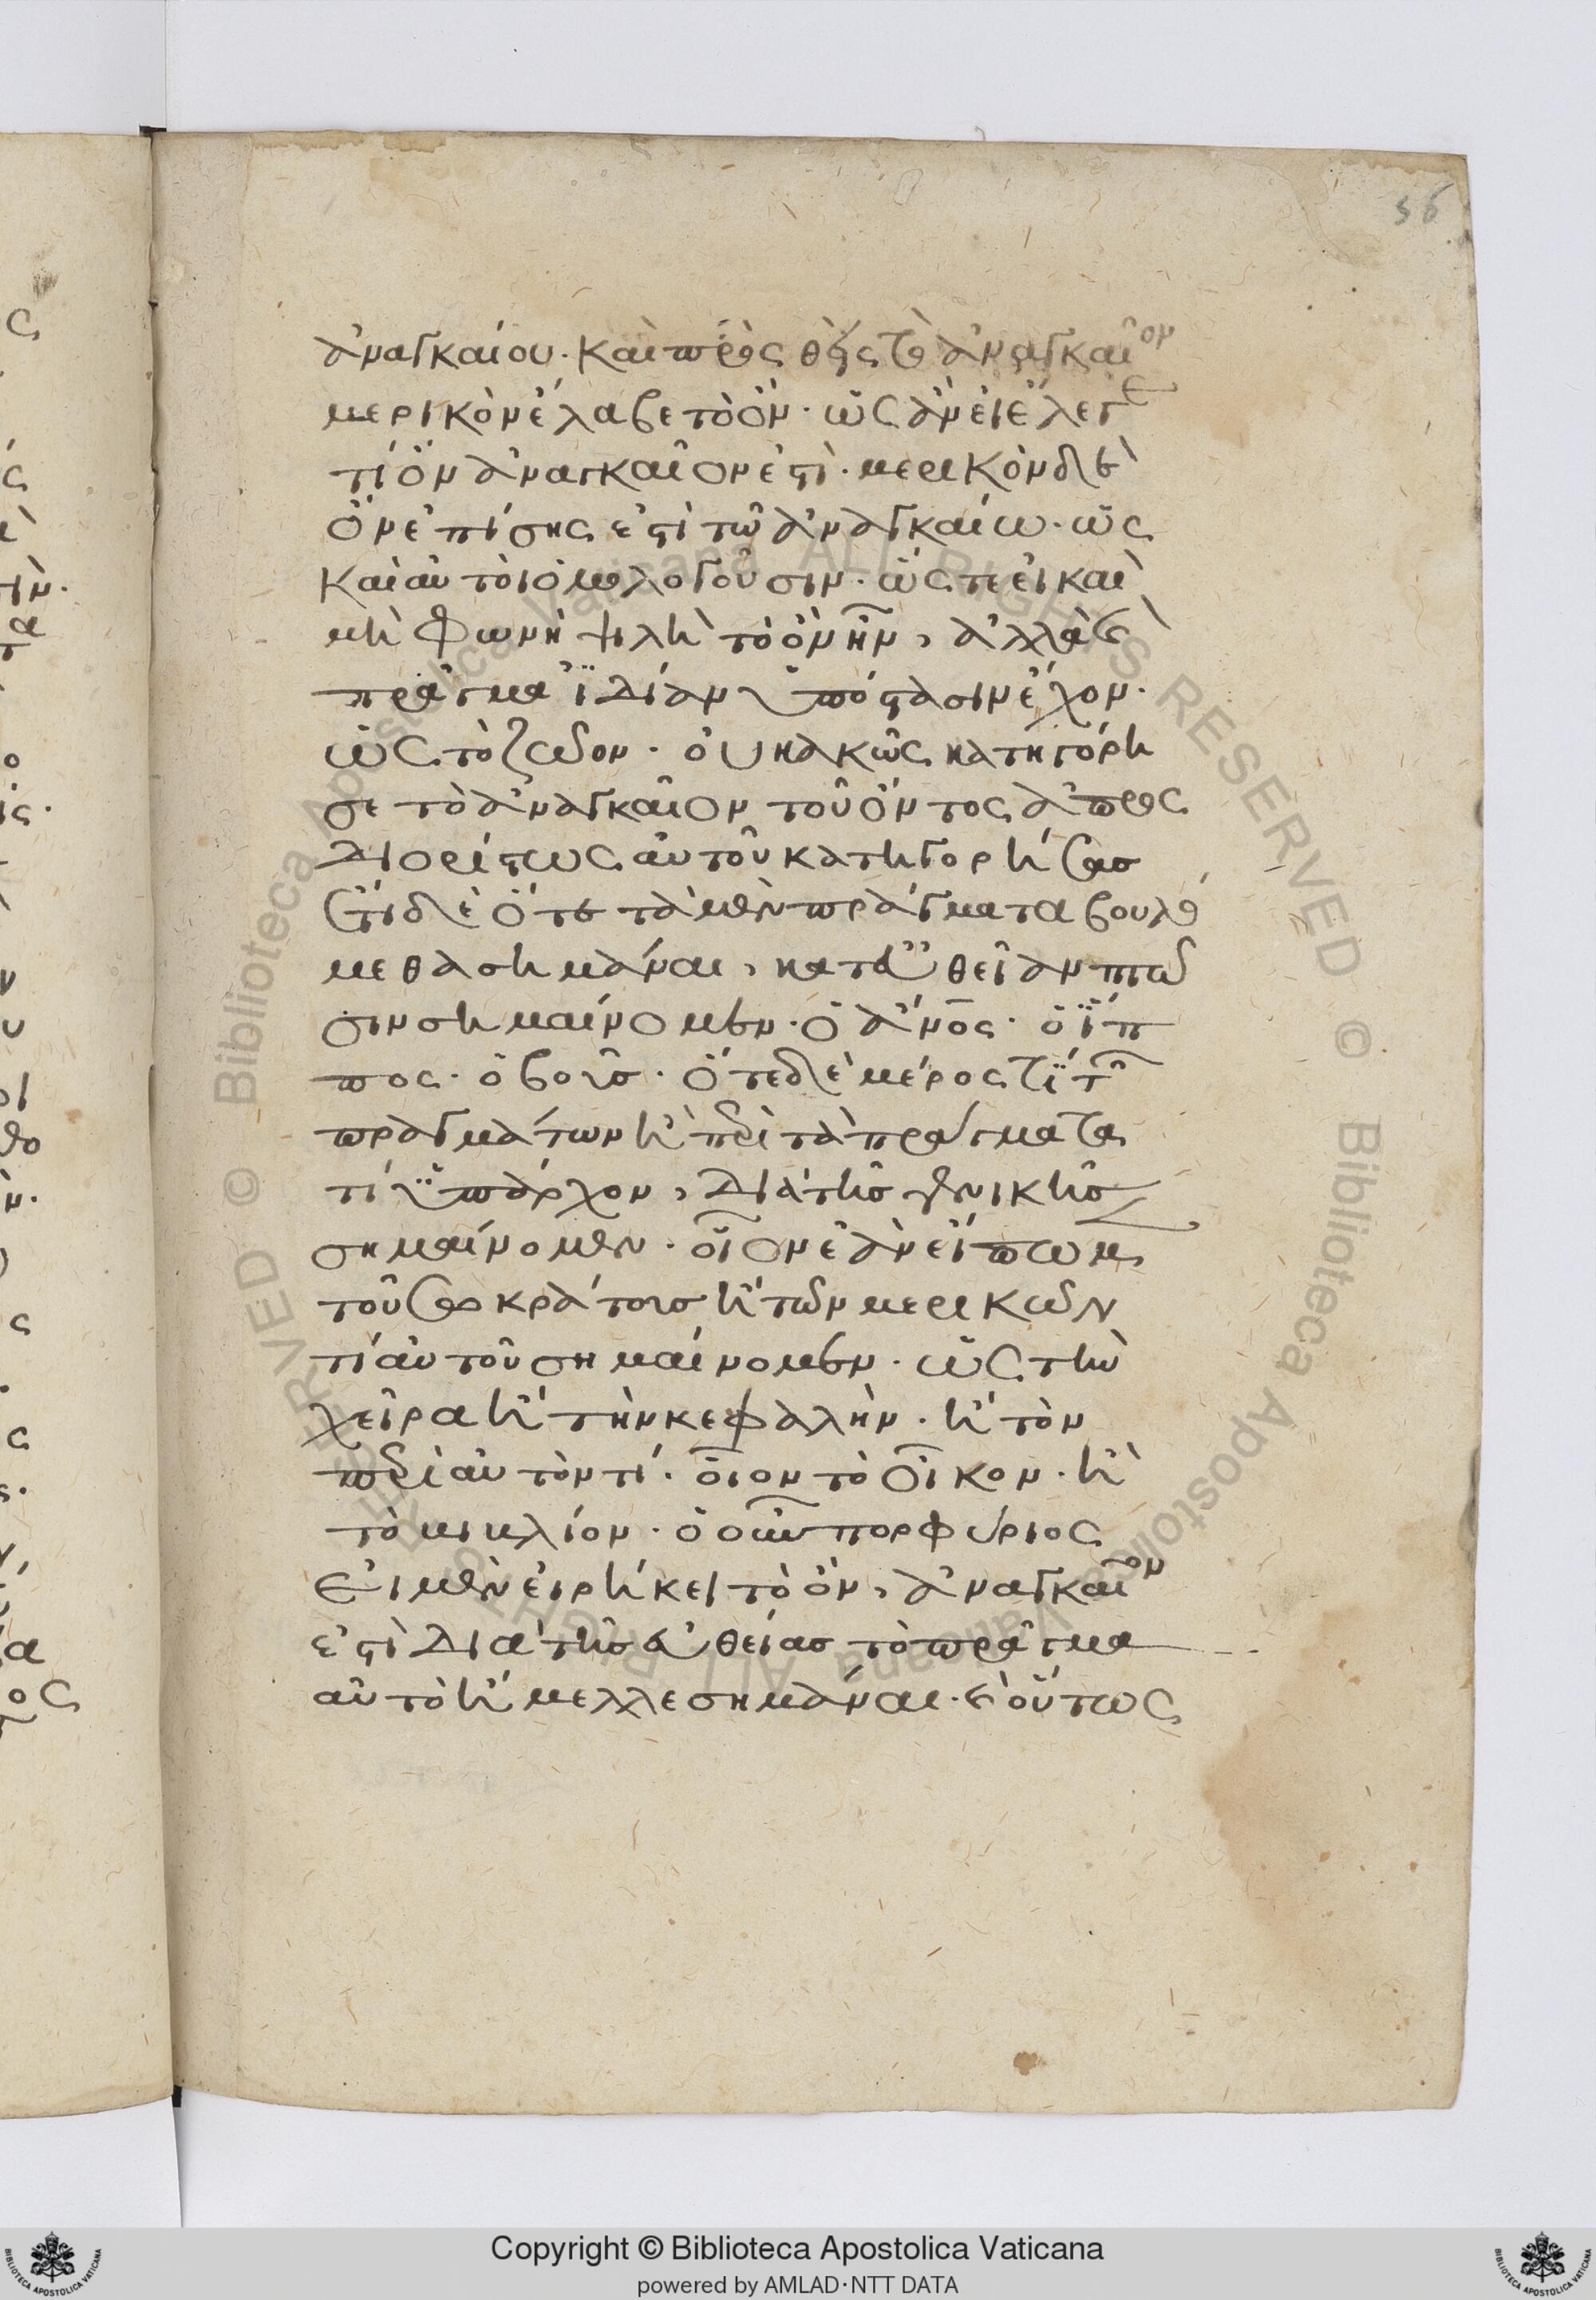 56
ἀναγκαίου· καὶ πρὸς θὴς τὸ ἀναγκαῖον
μερικὸν ἔλαβε τὸ ὄν· ὡς ἂν εἰ ἔλεγε
τί ὂν ἀναγκαῖον ἐστὶ· μερικὸν δὲ
ὂν ἐπίσης ἐστὶ τῶ ἀναγκαίω· ὡς
καὶ αὐτοὶ ὁμολογοῦσιν· ὥσπερ εἰ καὶ
μὴ φωνὴ ψιλὴ τὸ ὂν ἦν, ἀλλὰ καὶ
πρᾶγμα ἰδίαν ὑπόστασιν ἔχον·
ὡς τὸ ζῶον· οὐ κακῶς κατηγόρη
σε τὸ ἀναγκαῖον τοῦ ὄντος ἀπροσ
διορίστως αὐτοῦ κατηγορήσας
ἔτι δὲ ὅτε τὰ μὲν πράγματα βουλό
μεθα σημᾶναι, κατ' εὐθεῖαν πτῶ
σιν σημαίνομεν· ὁ ἄνος· ὁ ἵπ
πος· ὁ βοῦς· ὅτε δὲ μέρος τί τῶν
πραγμάτων ἢ περὶ τὰ πράγματα
τί ὑπάρχον, διὰ τῆς γενικῆς
σημαίνομεν· οἷον ἐὰν εἴπωμεν
τοῦ σωκράτους ἢ τῶν μερικῶν
τί αὐτοῦ σημαίνομεν· ὡς τὴν
χεῖρα ἢ τὴν κεφαλὴν· ἢ τὸν
περὶ αὐτόν τί· οἷον τὸ οἶκον· ἢ
τὸ κικλίον· ὁ οὖν πορφύριος
εἰ μὲν εἰρήκει τὸ ὂν, ἀναγκαῖον
ἐστὶ διὰ τῆς εὐθείας τὸ πρᾶγμα
αὐτὸ ἤμελλε σημᾶναι· καὶ οὕτως
Copyright © Biblioteca Apostolica Vaticana
powered by AMLAD·NTT DATA